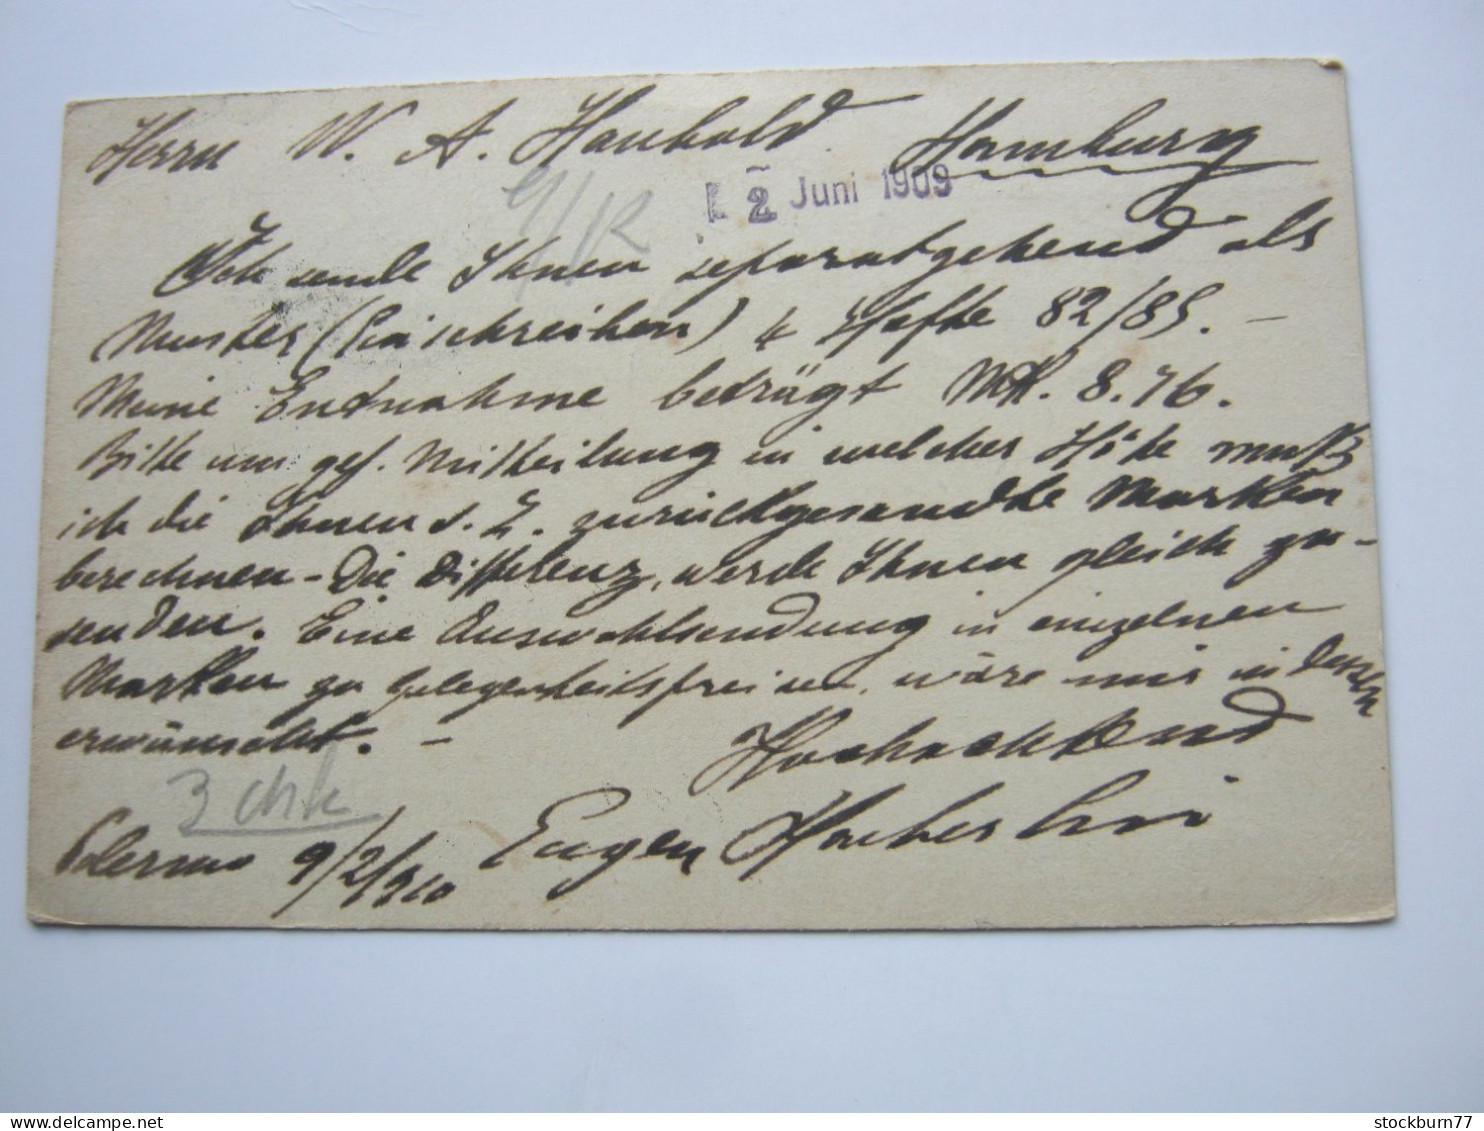 Herrn W. A. Haubold. Hamburg
2 Juni 1909
Ich sende Ihnen separatgehend als
Muster (Einschreiben) 4 Hefte 82/85. –
Meine Entnahme beträgt Mk. 8.76.
Bitte um gef. Mitteilung in welcher Höhe muß
ich die Ihnen s. Z. zurückgesandte Marken
berechnen – Die Differenz, werde Ihnen gleich zu-
senden. Eine Auswahlsendung in einzelnen
Marken zu gelegenheitspreisen, wäre mir indessen
erwünscht. –
Hochachtend
3
Eugen
Palermo 9/2/910
stockburn77